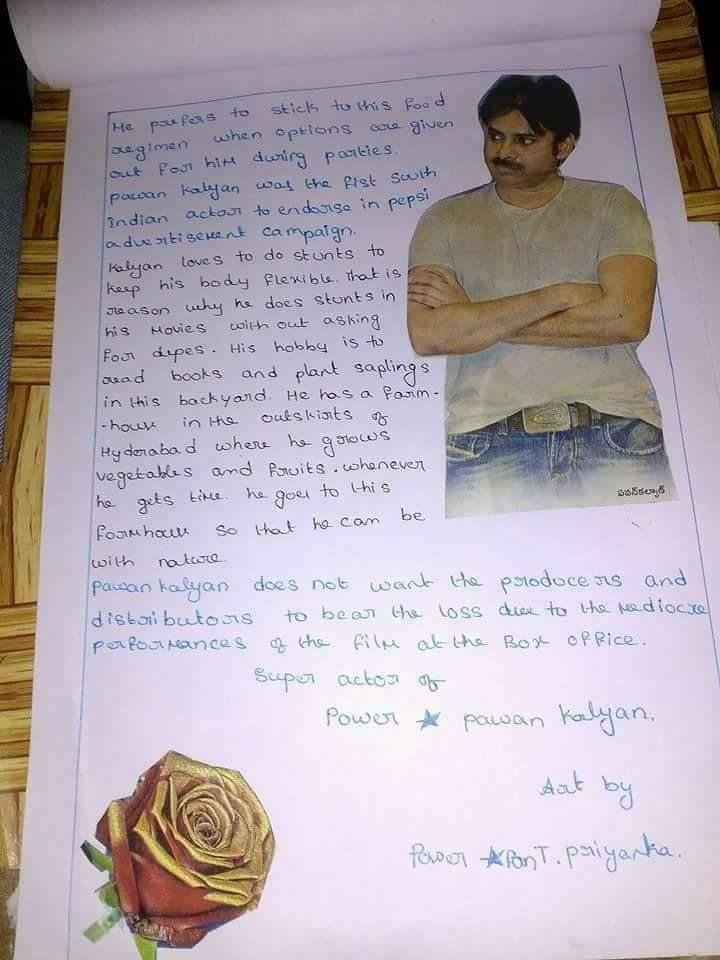 He prefers to stick to this food
regimen when options are given
out for him during parties.
pawan Kalyan was the fist south
Indian actor to endorse in pepsi
advertisement campaign.
Kalyan loves to do stunts to
keep his body flexible. That is
reason why he does stunts in
his Movies with out asking
for dupes. His hobby is to
read books and plant saplings
in this backyard. He has a farm-
-house in the outskirts of
Hyderabad where he grows
vegetables and fruits. whenever
he gets time. he goes to this
formhouse so that he can be
with nature.
పవన్‌కల్యాణ్
pawan kalyan does not want the producers and
distributors to bear the loss due to the mediocre
performances of the film at the Box office.
Super actor of
Power ★ pawan kalyan.
Art by
Power ★ fan T. priyanka.